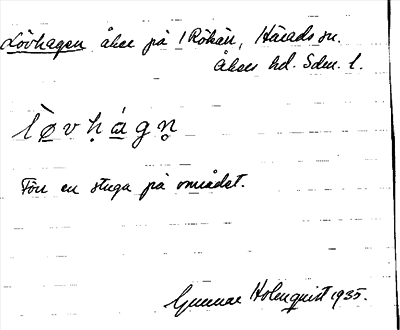 Lövhagen åker på 1 Rökärr, Härads sn.
Åkers hd. Sdm. l.
lø̀vḥág̣n̥
Förr en stuga på området.
Gunnar Holmquist 1935.